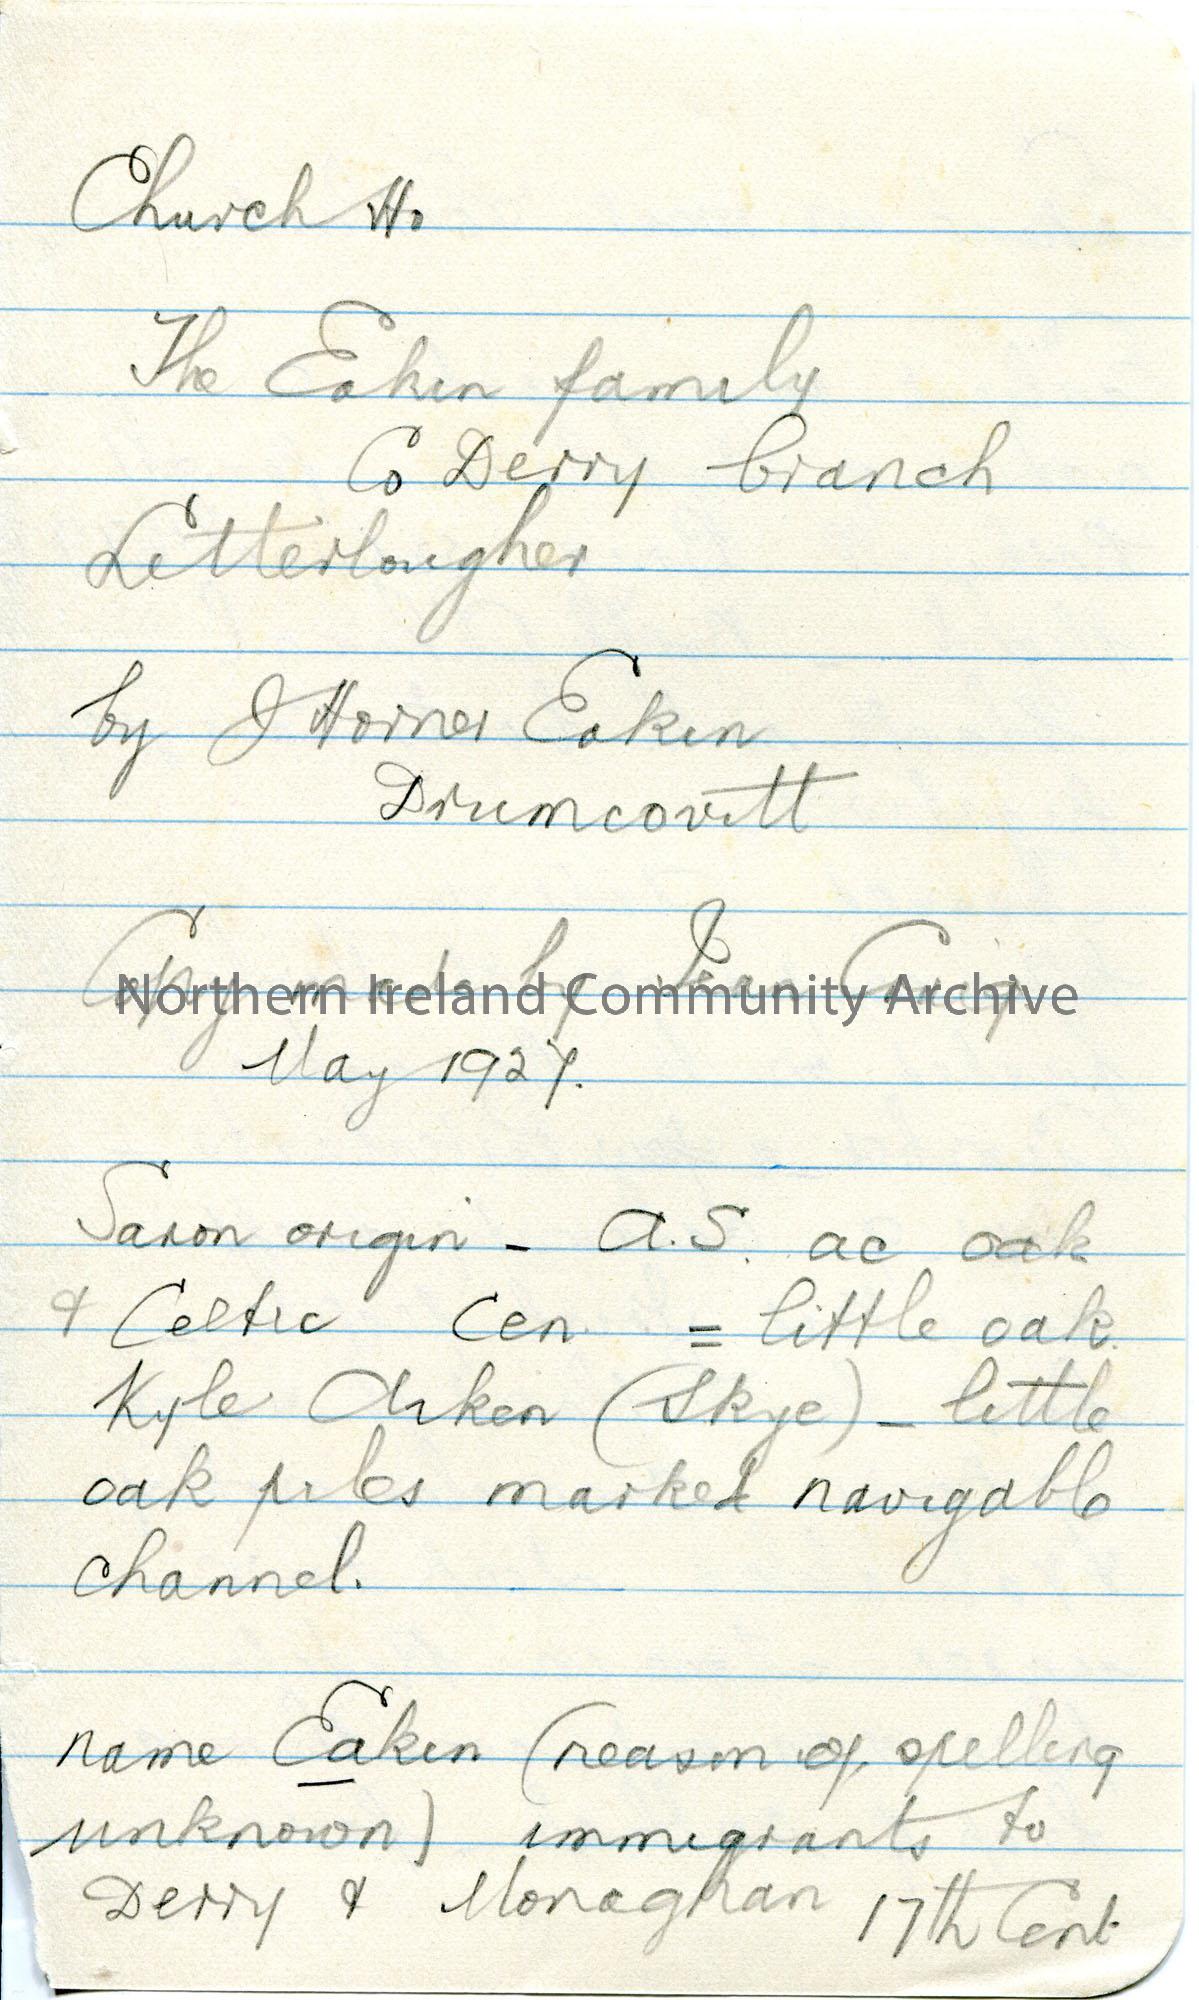 Church Ho
The Eakin family
Co Derry branch
Letterlougher
by J Horner Eakin
Drumcovitt
Copy made by Jean Craig
Northern Ireland Community Archive
May 1927.
Saxon origin - A.S. ac oak
& Celtic Cen = little oak.
Kyle Aiken (Skye) - little
oak piles marked navigable
channel.
name Eakin (reason of spelling
unknown) immigrants to
Derry & Monaghan 17th Cent